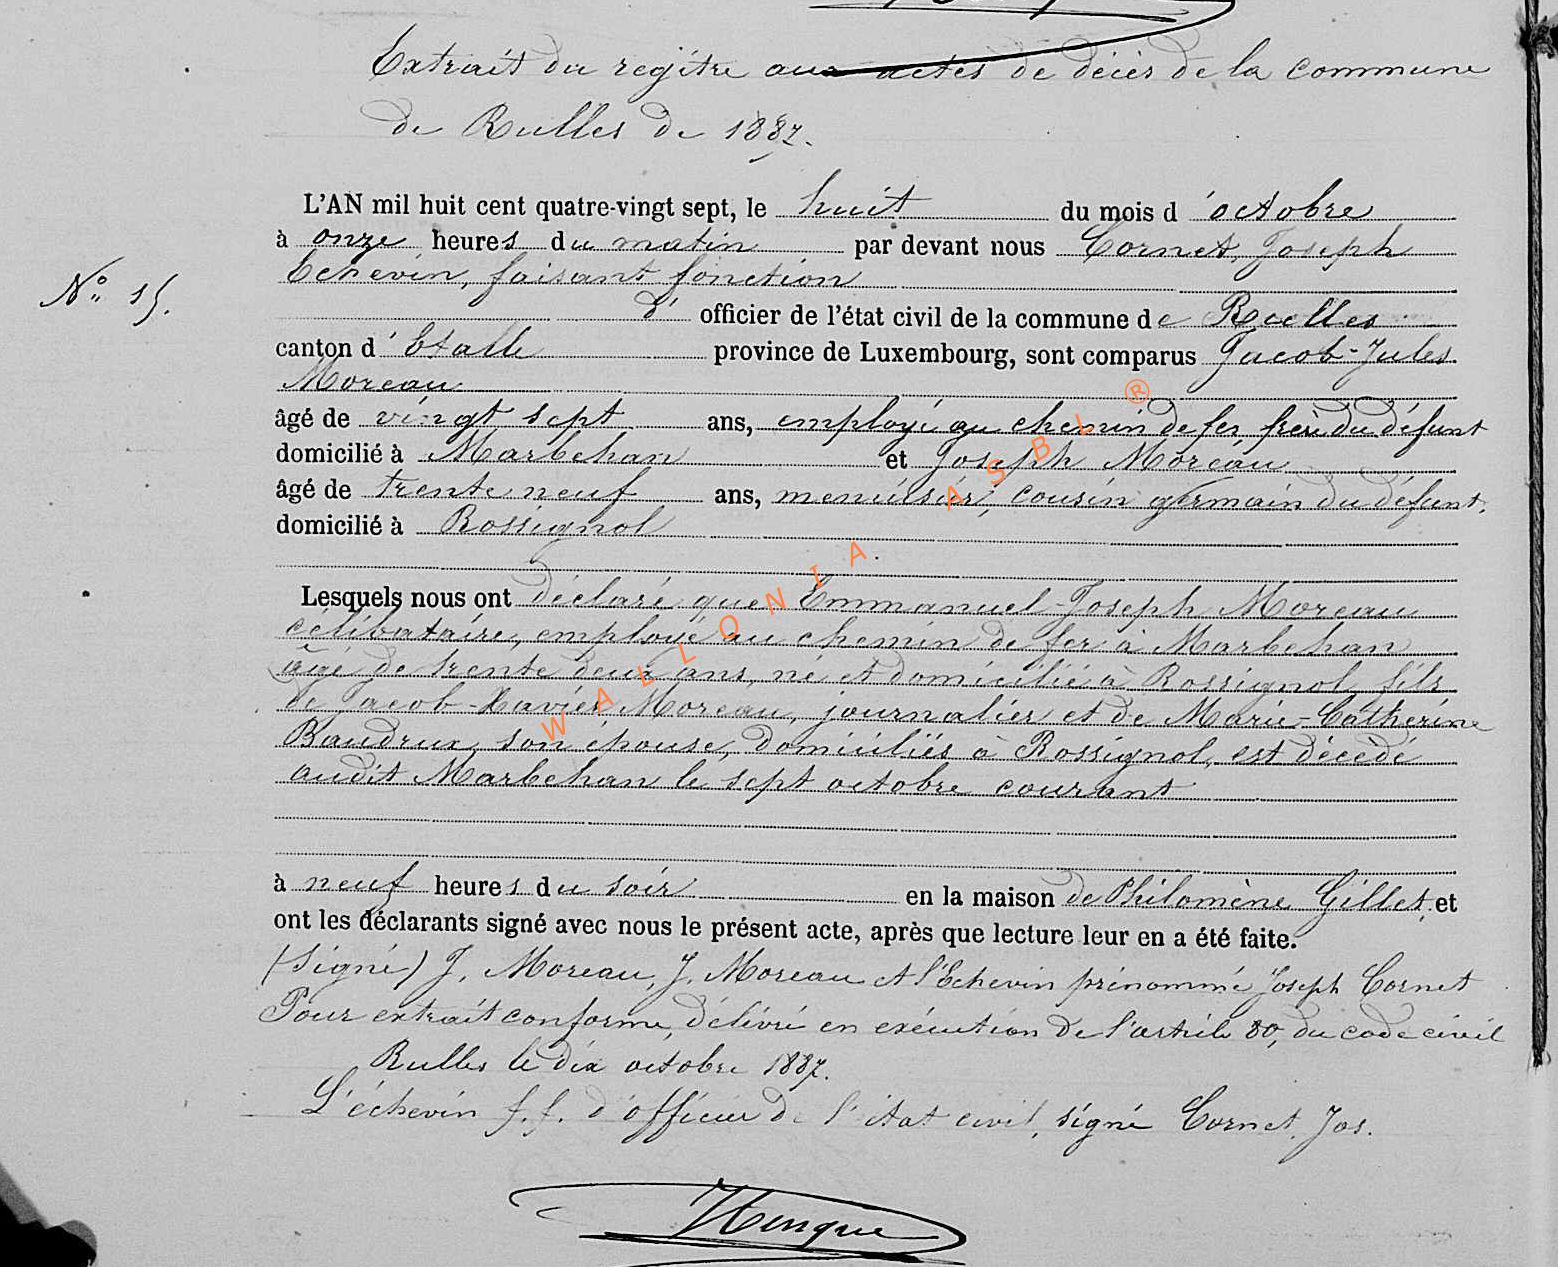 Extrait du regître aux actes de décès de la commune
de Rulles de 1887.
L'AN mil huit cent quatre-vingt sept, le huit du mois d'octobre
à onze heures du matin par devant nous Cornet, Joseph
Echevin, faisant fonction
N° 15.
d' officier de l'état civil de la commune de Rulles
canton d'Etalle province de Luxembourg, sont comparus Jacob-Jules
Moreau
âgé de vingt sept ans, employé au chemin de fer, frère du défunt
domicilié à Marbehan et Joseph Moreau
âgé de trente neuf ans, menuisier, cousin germain du défunt,
domicilié à Rossignol
Lesquels nous ont déclaré que Emmanuel-Joseph Moreau
célibataire, employé au chemin de fer à Marbehan
âgé de trente deux ans, né et domicilié à Rossignol, fils
de Jacob-Xavier Moreau, journalier et de Marie-Catherine
Baudrux, son épouse, domiciliés à Rossignol, est décédé
audit Marbehan le sept octobre courant
à neuf heures du soir en la maison de Philomène Gillet, et
ont les déclarants signé avec nous le présent acte, après que lecture leur en a été faite.
(Signé) J. Moreau, J. Moreau et l'Echevin prénommé Joseph Cornet
Pour extrait conforme, délivré en exécution de l'article 80, du code civil
Rulles le dix octobre 1887.
L'échevin f.f. d'officier de l'état civil, signé Cornet, Jos.
WALLONIA ASBL ®